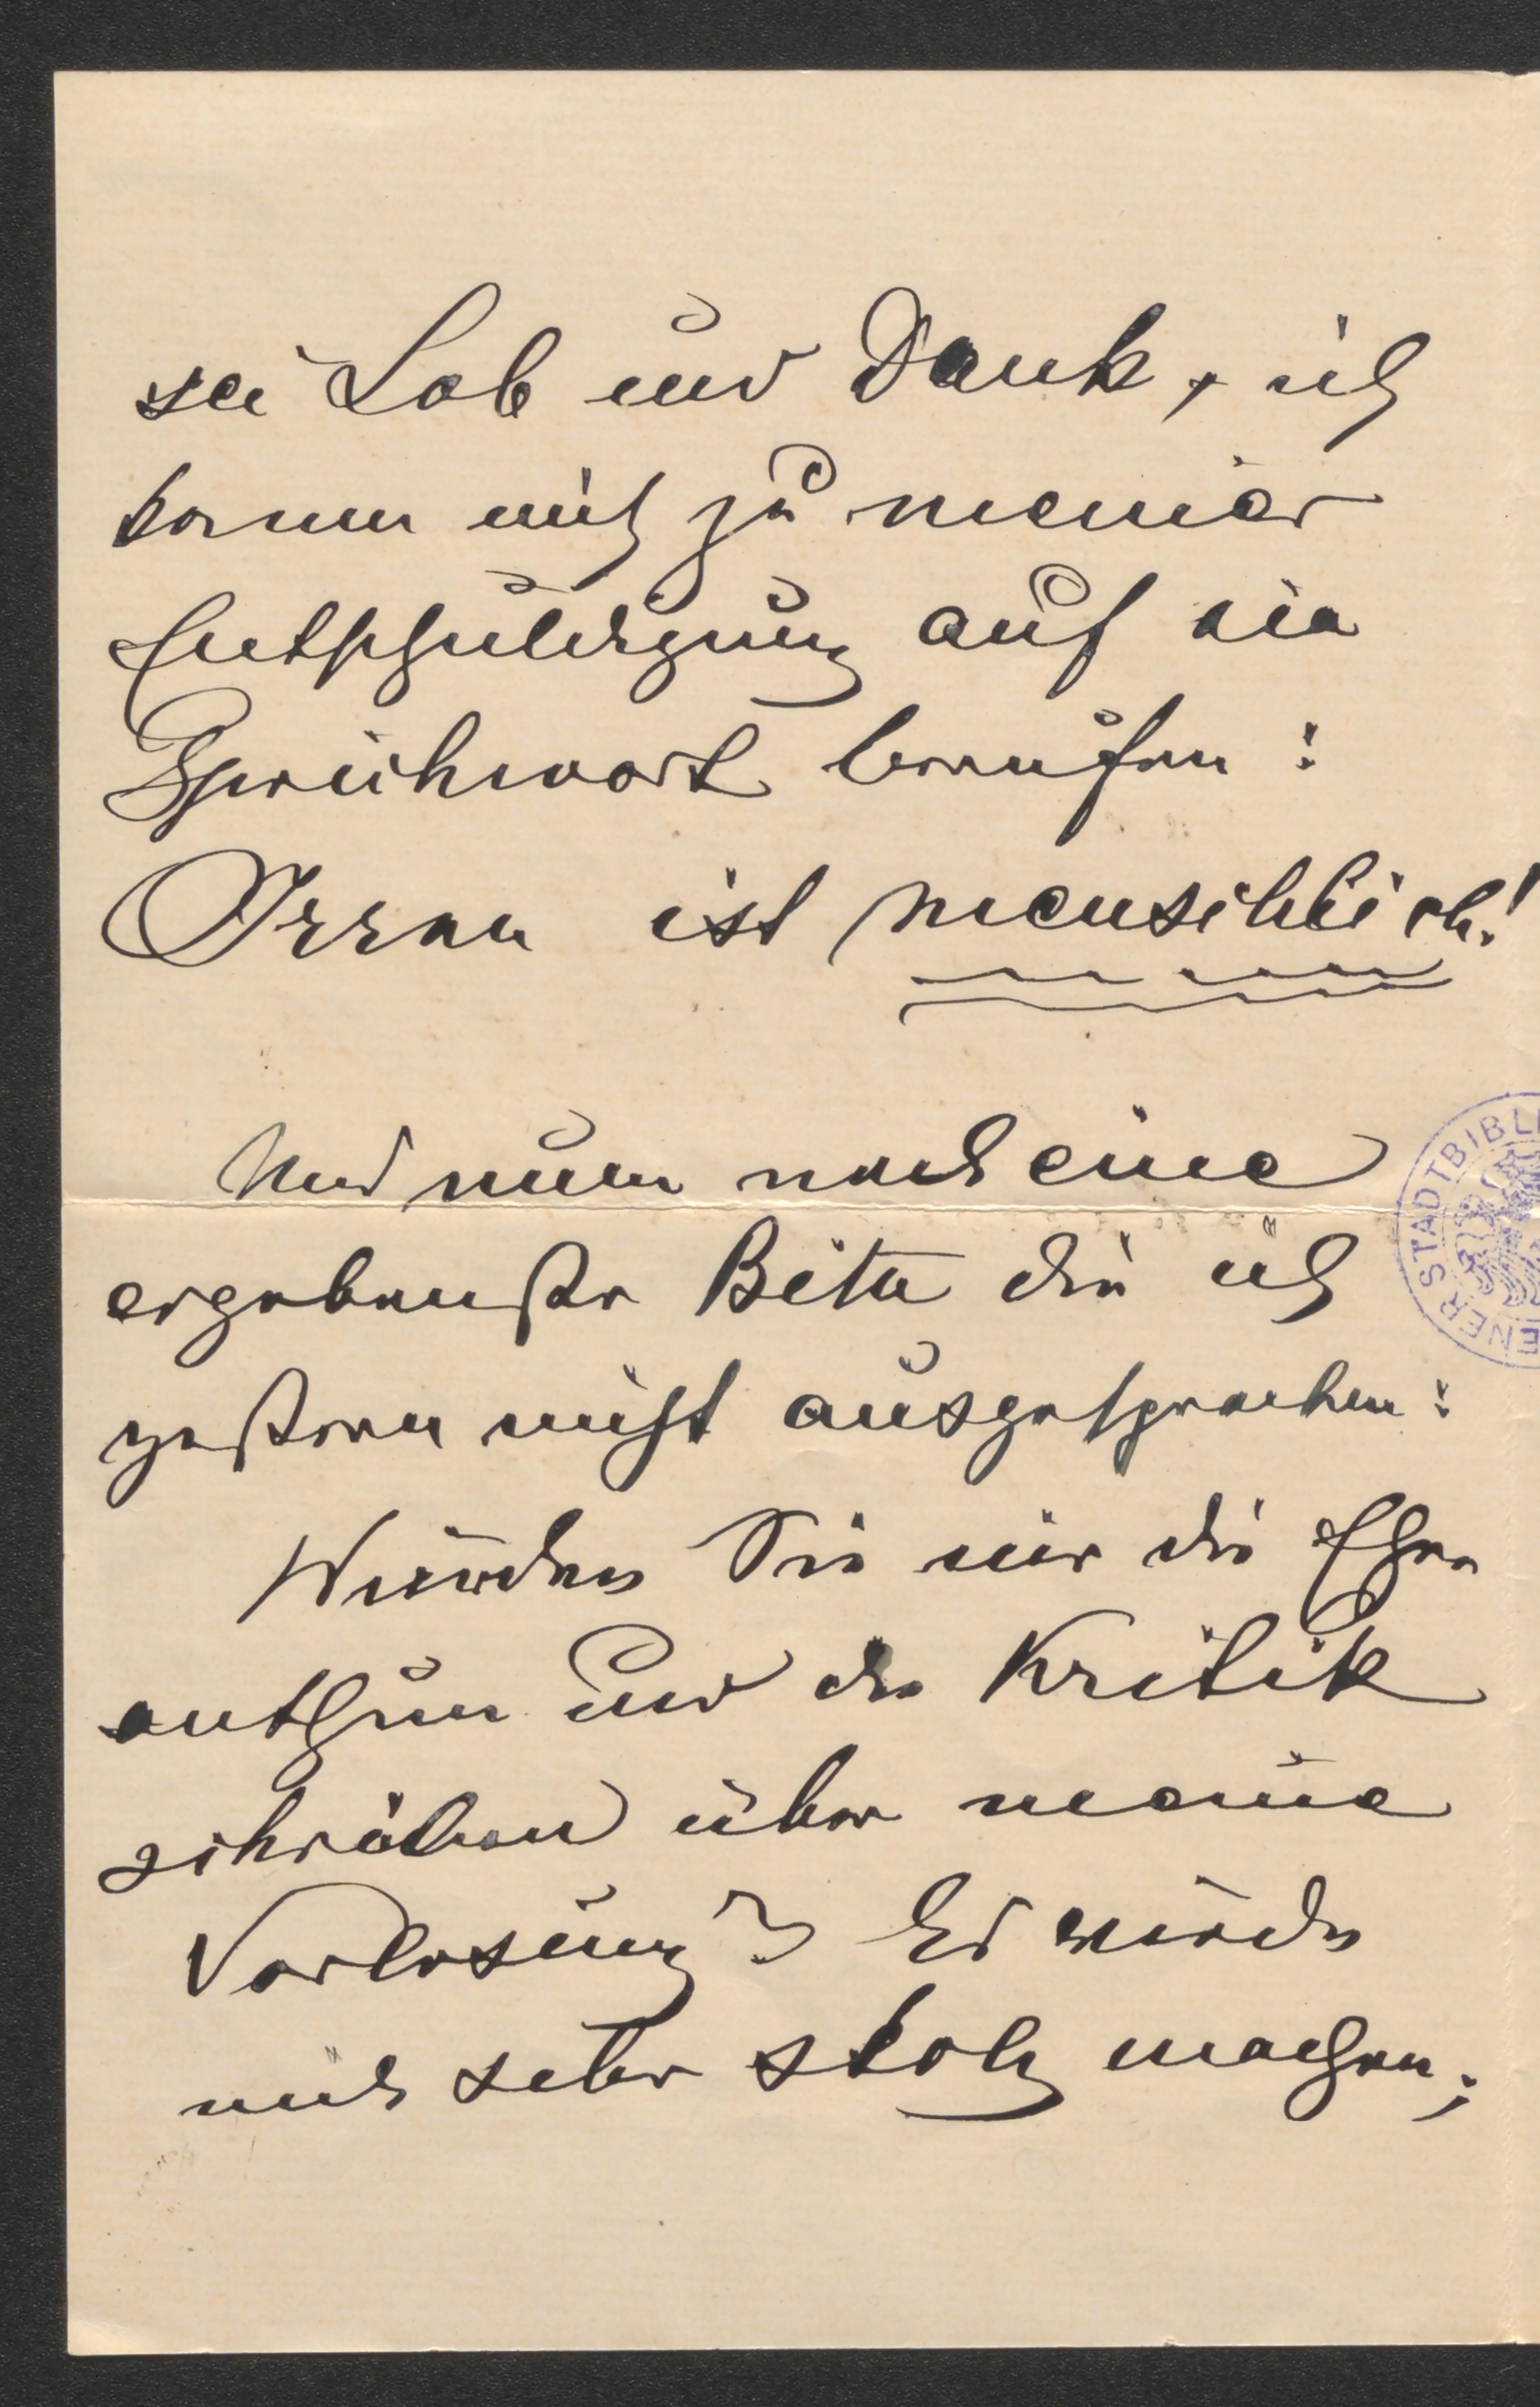 sei Lob und Dank, ich
kann mich zu meiner
Entschuldigung auf ein
Sprichwort berufen:
Irren ist menschlich!
Und nun noch eine
ergebenste Bitte die ich
gestern nicht ausgesprochen:
Würden Sie mir die Ehre
anthun und die Kritik
schreiben über meine
Vorlesung? Es würde
mich sehr stolz machen;
ENER STADTBIBLI